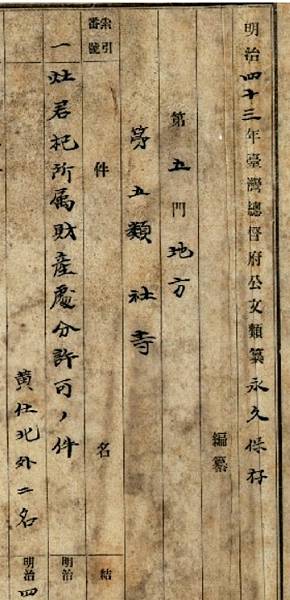 明治四十三年臺灣總督府公文類纂永久保存
編纂
第五門地方
第五類社寺
索引番號
件名
結
一灶君祀所属財產處分許可ノ件
明治
黄仕北外二名
明治四